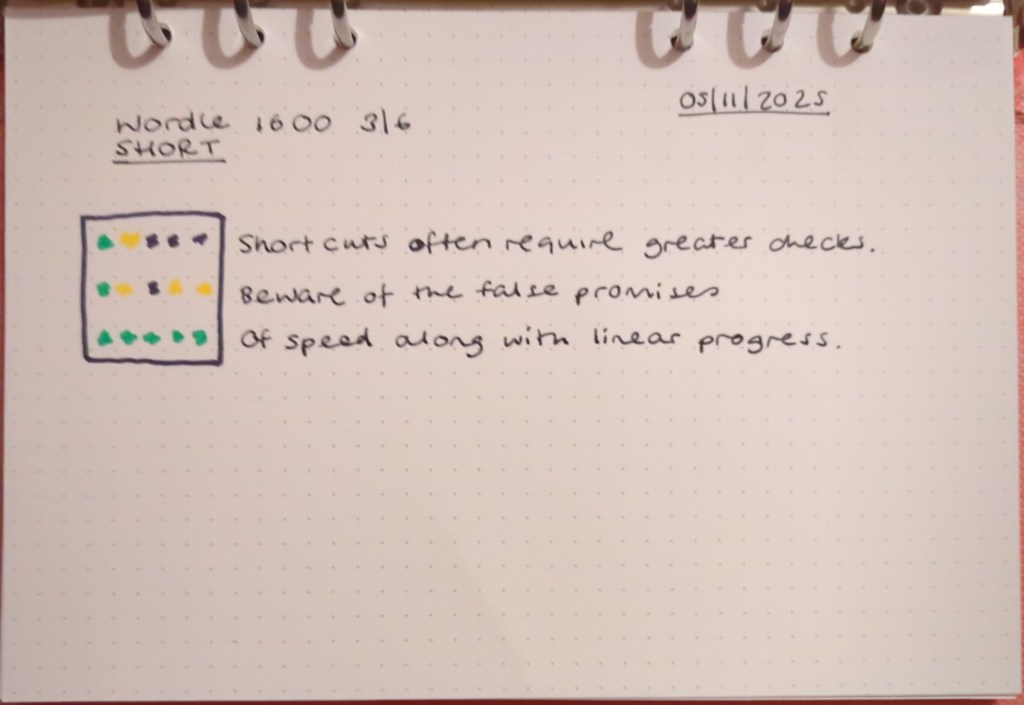 05/11/2025
Wordle 1600 3/6
SHORT
Short cuts often require greater checks.
Beware of the false promises
Of speed along with linear progress.